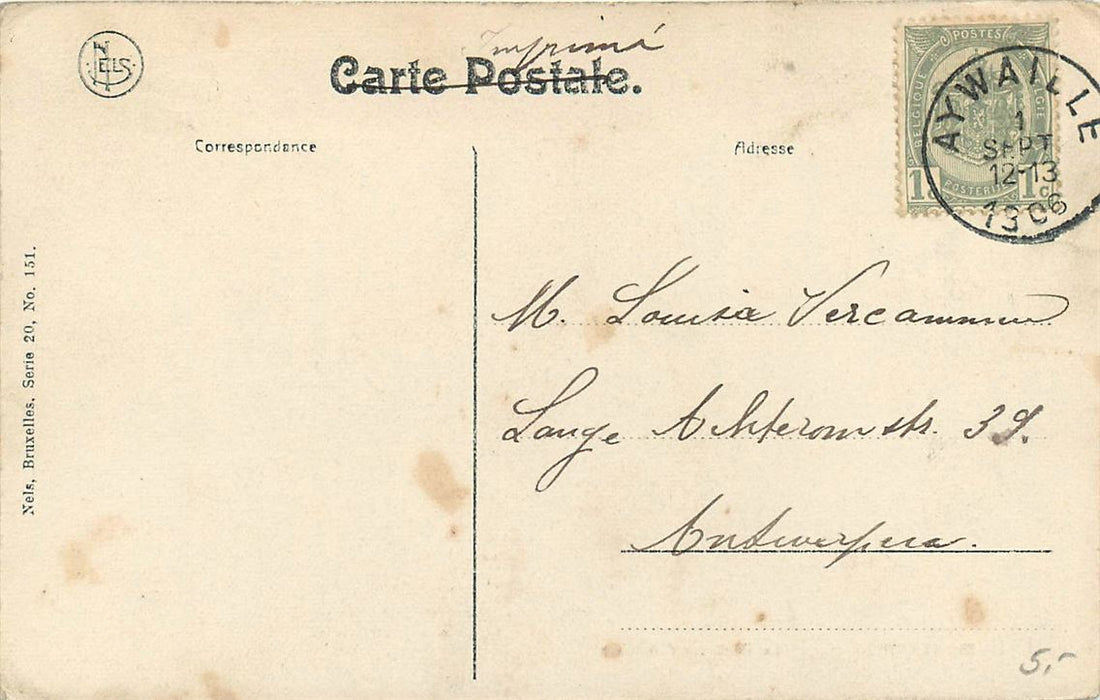 NELS
Imprimé
Carte Postale.
Correspondance
Adresse
POSTES
BELGIQUE
BELGIË
POSTERIJEN
1c 1c
AYWAILLE
1
SEPT
12-13
1906
M. Louisa Vercammen
Lange Achteromstr. 39.
Antwerpen.
Nels, Bruxelles, Serie 20, No. 151.
5.-